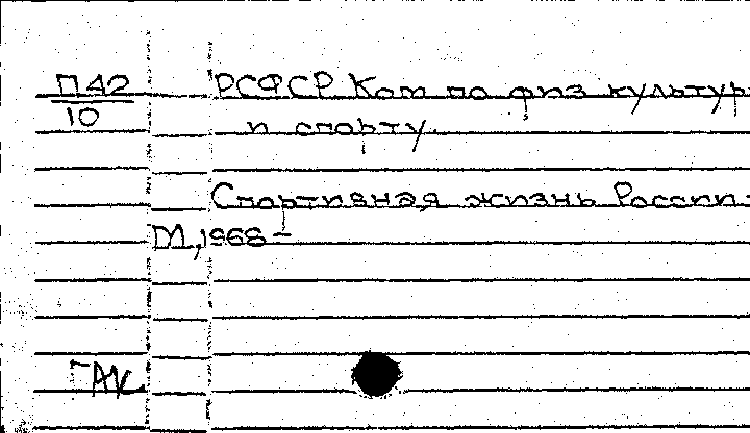 П42 РСФСР. Ком по физ культур
10 и спорту.
Спортивная жизнь России
М, 1968 –
ГАК